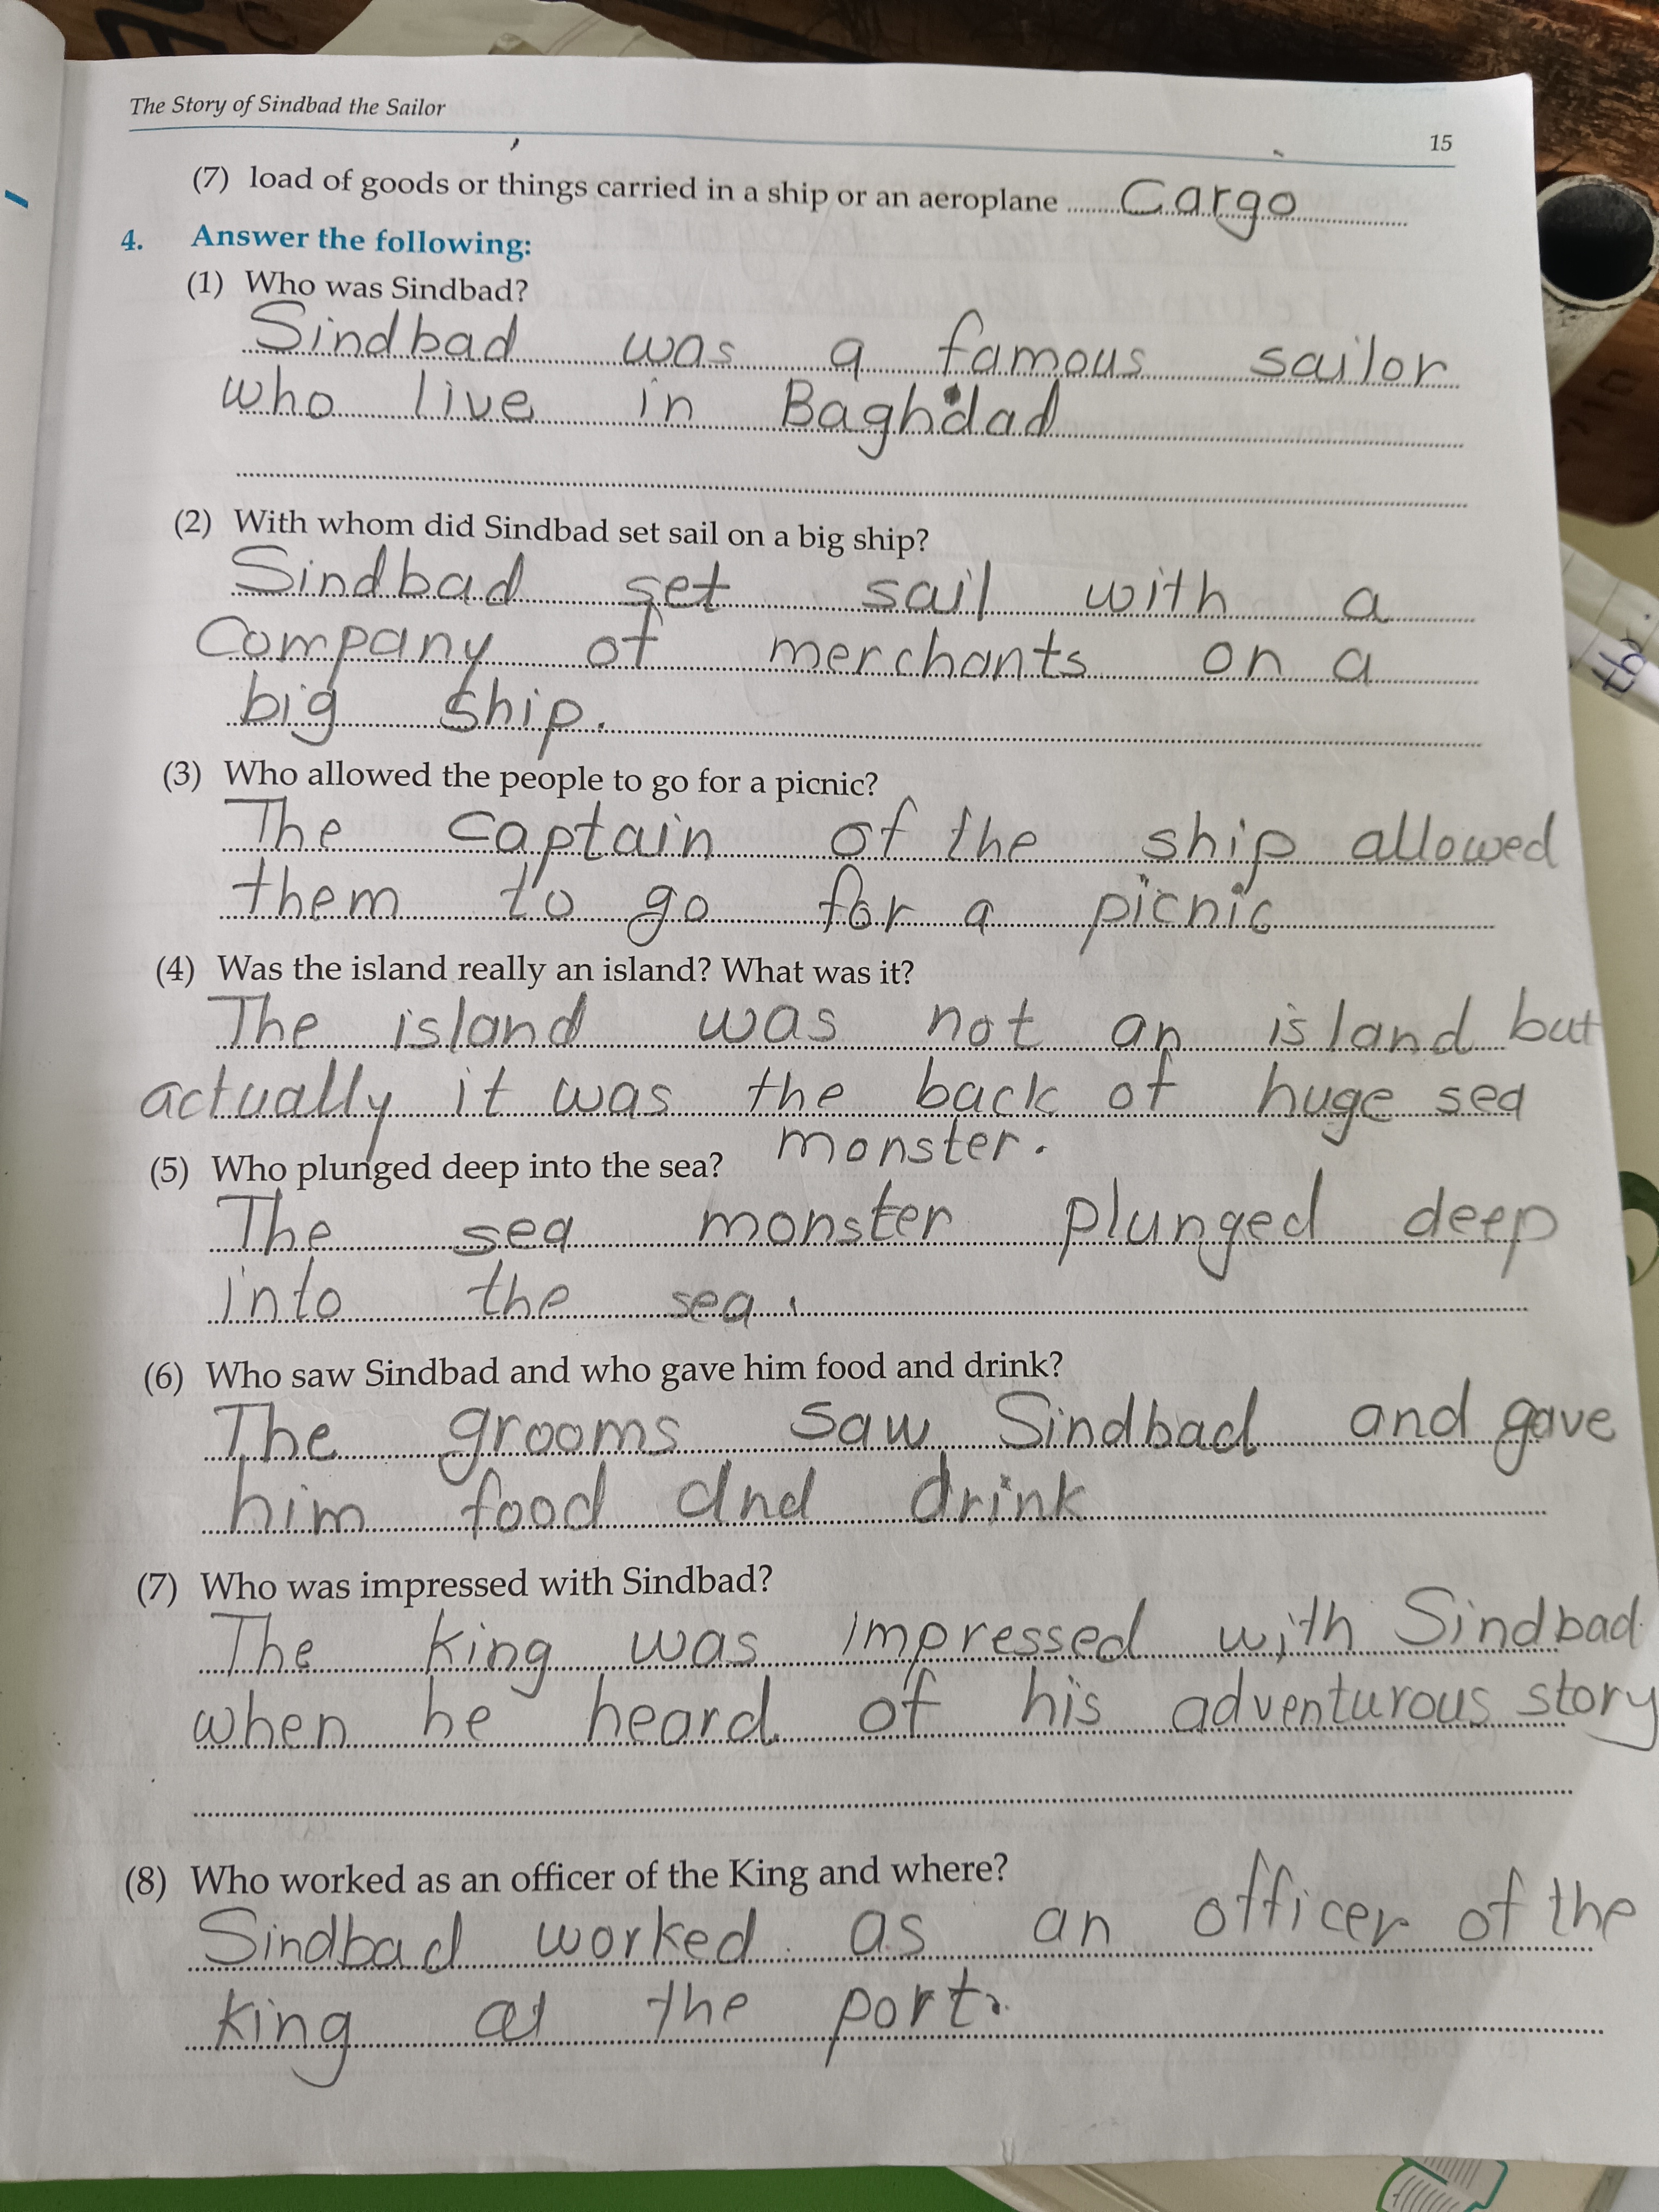 The Story of Sindbad the Sailor
15
(7) load of goods or things carried in a ship or an aeroplane ........ Cargo
4. Answer the following:
(1) Who was Sindbad?
Sindbad was a famous sailor
who live in Baghdad
(2) With whom did Sindbad set sail on a big ship?
Sindbad set sail with a
Company of merchants on a
big ship.
(3) Who allowed the people to go for a picnic?
The captain of the ship allowed
them to go for a picnic
(4) Was the island really an island? What was it?
The island was not an island but
actually it was the back of huge sea
monster.
(5) Who plunged deep into the sea?
The sea monster plunged deep
into the sea.
(6) Who saw Sindbad and who gave him food and drink?
The grooms saw Sindbad and gave
him food and drink
(7) Who was impressed with Sindbad?
The king was impressed with Sindbad
when he heard of his adventurous story
(8) Who worked as an officer of the King and where?
Sindbad worked as an officer of the
king at the port.